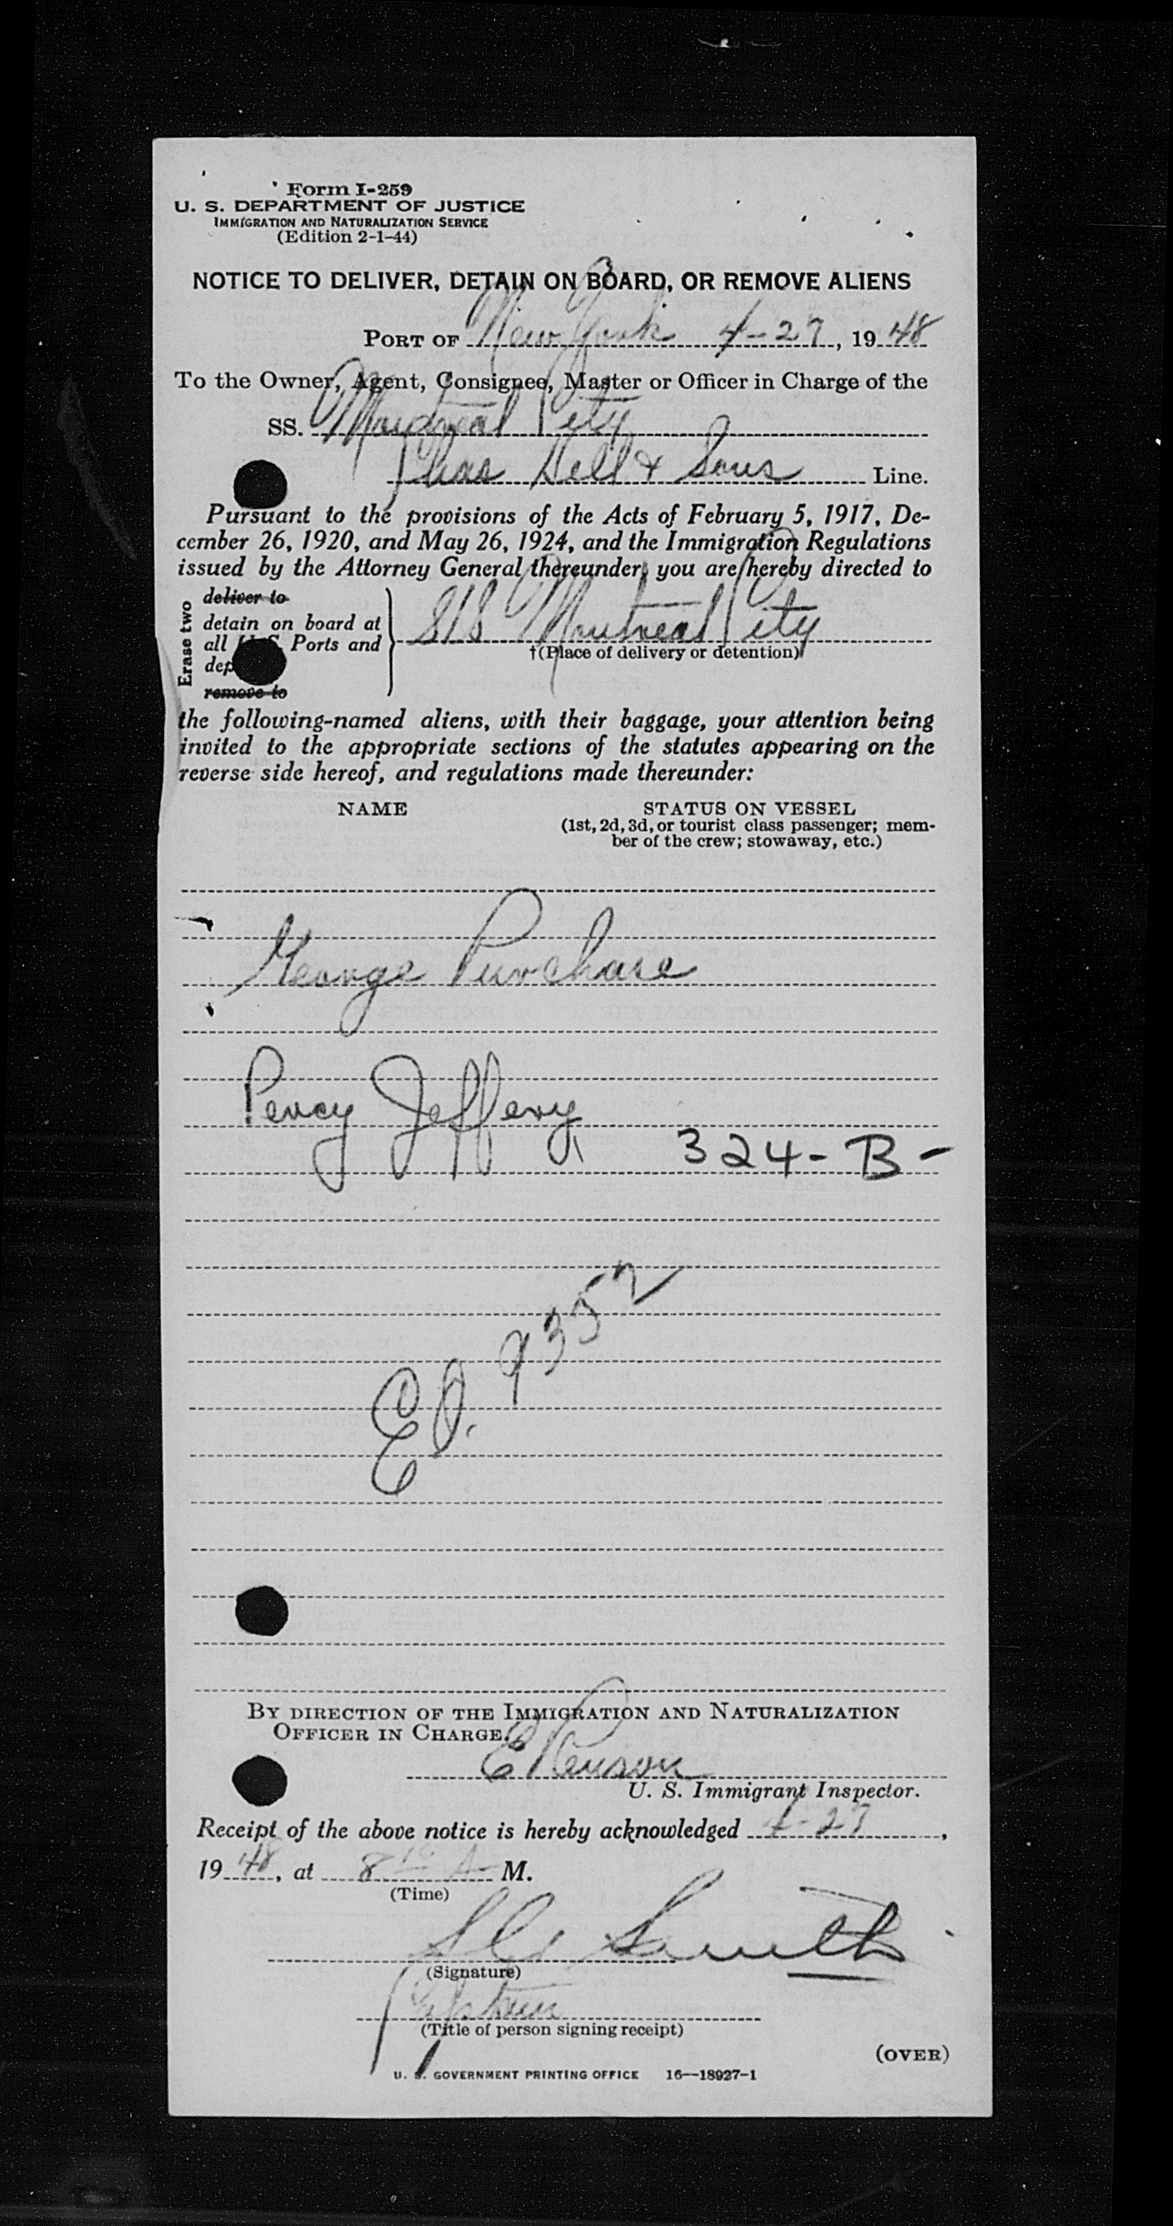 Form I-259
U. S. DEPARTMENT OF JUSTICE
IMMIGRATION AND NATURALIZATION SERVICE
(Edition 2-1-44)
NOTICE TO DELIVER, DETAIN ON BOARD, OR REMOVE ALIENS
PORT OF New York 4-27, 1948
To the Owner, Agent, Consignee, Master or Officer in Charge of the
SS. Montreal City
Chas Hill & Sons Line.
Pursuant to the provisions of the Acts of February 5, 1917, De-
cember 26, 1920, and May 26, 1924, and the Immigration Regulations
issued by the Attorney General thereunder, you are hereby directed to
Erase two
deliver to
detain on board at
all U.S. Ports and
dep
remove to
S/S Montreal City
†(Place of delivery or detention)
the following-named aliens, with their baggage, your attention being
invited to the appropriate sections of the statutes appearing on the
reverse side hereof, and regulations made thereunder:
NAME STATUS ON VESSEL
(1st, 2d, 3d, or tourist class passenger; mem-
ber of the crew; stowaway, etc.)
George Purchase
Percy Jeffery
324-B-
EO. 9352
BY DIRECTION OF THE IMMIGRATION AND NATURALIZATION
OFFICER IN CHARGE.
U. S. Immigrant Inspector.
Receipt of the above notice is hereby acknowledged 4-27,
1948, at 8 A M.
(Time)
Smith
(Signature)
Captain
(Title of person signing receipt)
(OVER)
U. S. GOVERNMENT PRINTING OFFICE 16—18927-1